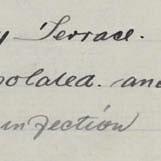 y Terrace.
olated. and
infection